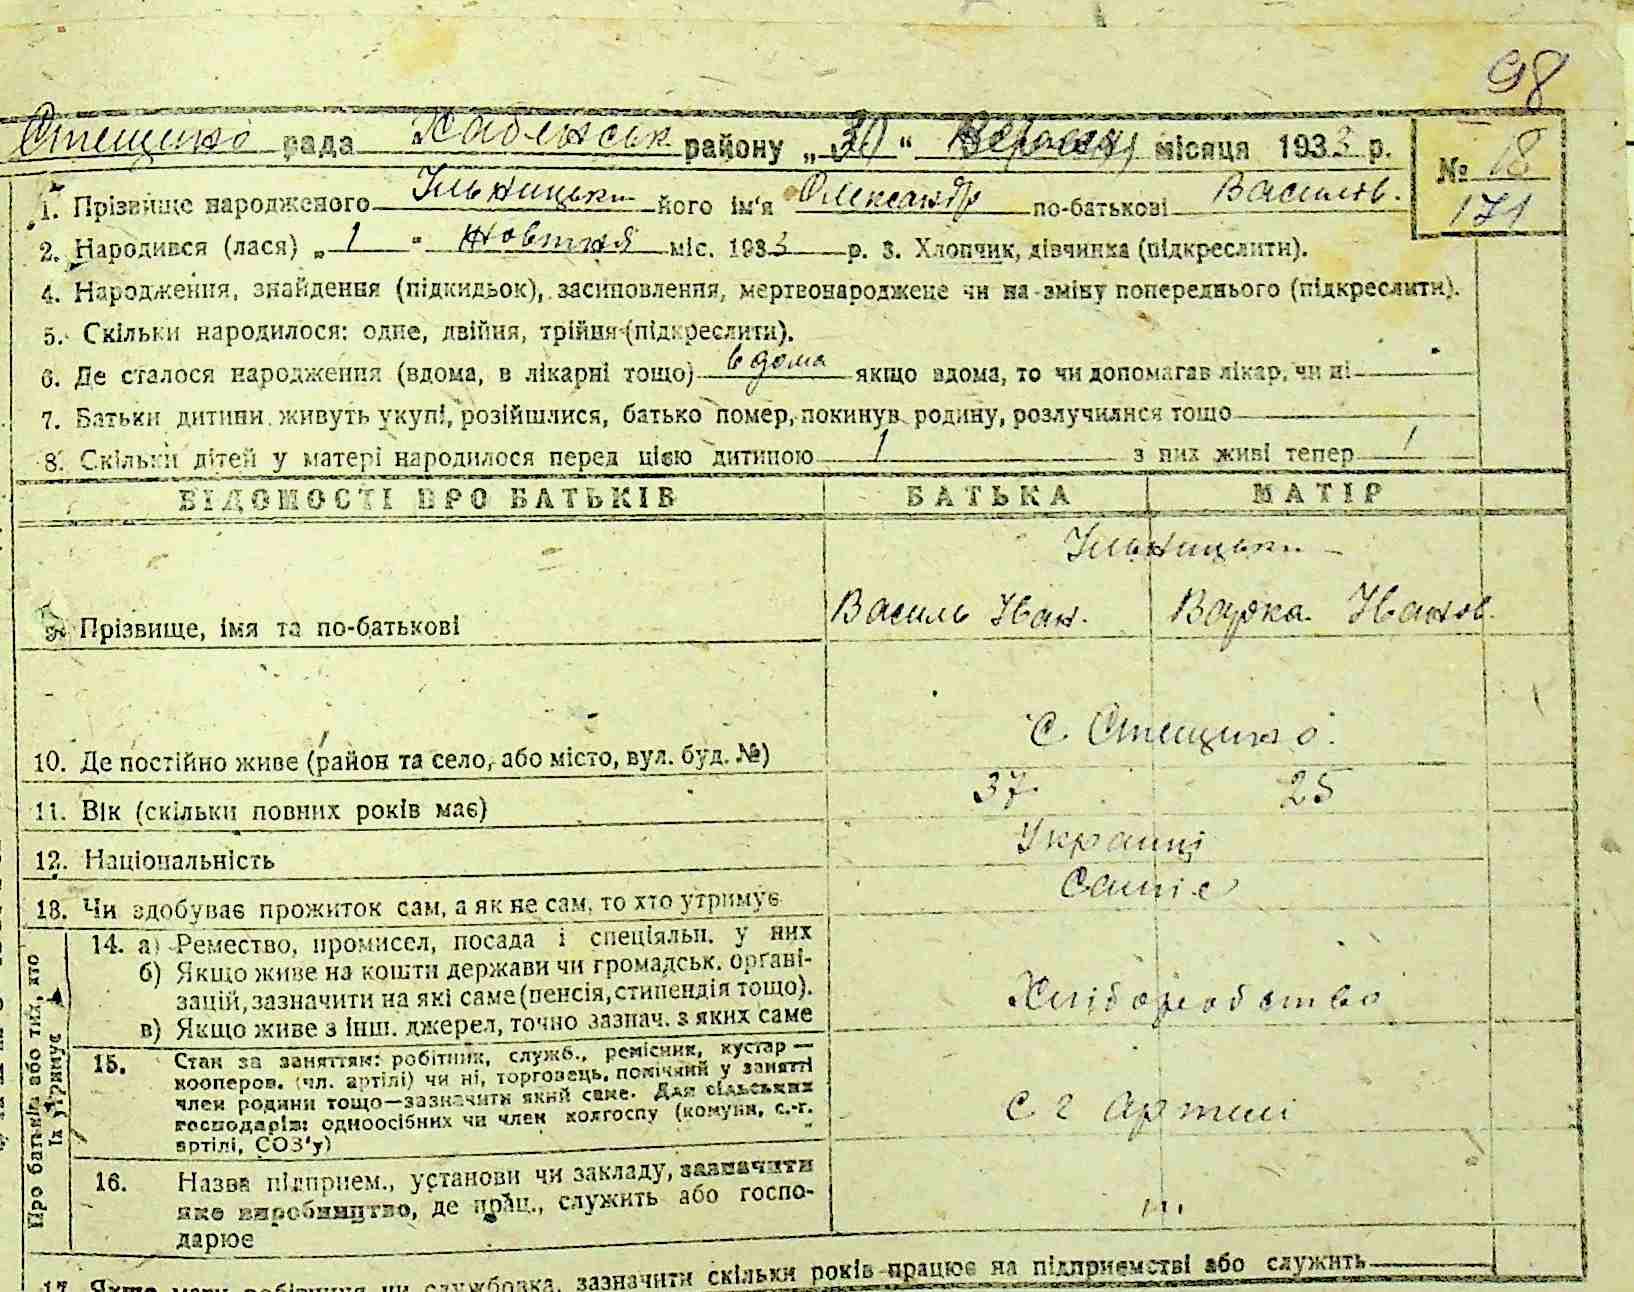 98
Стещинс рада Хабенськ району „30“ Вересня місяця 1933 р.
№ 18
171
1. Прізвище народженого Ільницьки його ім'я Олександр по-батькові Василів.
2. Народився (лася) „1“ жовтня міс. 1933 р. 3. Хлопчик, дівчинка (підкреслити).
4. Народження, знайдення (підкидьок), засиновлення, мертвонароджене чи на зміну попереднього (підкреслити).
5. Скільки народилося: одне, двійня, трійня (підкреслити).
6. Де сталося народження (вдома, в лікарні тощо) вдома якщо вдома, то чи допомагав лікар, чи ні
7. Батьки дитини живуть укупі, розійшлися, батько помер, покинув родину, розлучилися тощо
8. Скільки дітей у матері народилося перед цією дитиною 1 з них живі тепер 1
ВІДОМОСТІ ПРО БАТЬКІВ БАТЬКА МАТІР
Ільницьки
9. Прізвище, імя та по-батькові Василь Іван. Варка Іванов.
10. Де постійно живе (район та село, або місто, вул. буд. №) с Стещино.
11. Вік (скільки повних років має) 37 25
12. Національність Українці
13. Чи здобуває прожиток сам, а як не сам, то хто утримує Самі є
Про батьків або тих, хто їх утримує
14. а) Ремество, промисел, посада і спеціяльн. у них
б) Якщо живе на кошти держави чи громадськ. органі-
зацій, зазначити на які саме (пенсія, стипендія тощо).
в) Якщо живе з інш. джерел, точно зазнач. з яких саме
Хліборобство
15. Стан за заняттям: робітник, служб., ремісник, кустар —
кооперов. (чл. артілі) чи ні, торговець, помічний у занятті
член родини тощо—зазначити який саме. Для сільських
господарів: одноосібних чи член колгоспу (комуни, с.-г.
артілі, СОЗ'у)
с г артілі
16. Назва підприєм., установи чи закладу, зазначити
яке виробництво, де прац., служить або госпо-
дарює
17. Якщо мати робітниця чи службовка, зазначити скільки років працює на підприємстві або служить